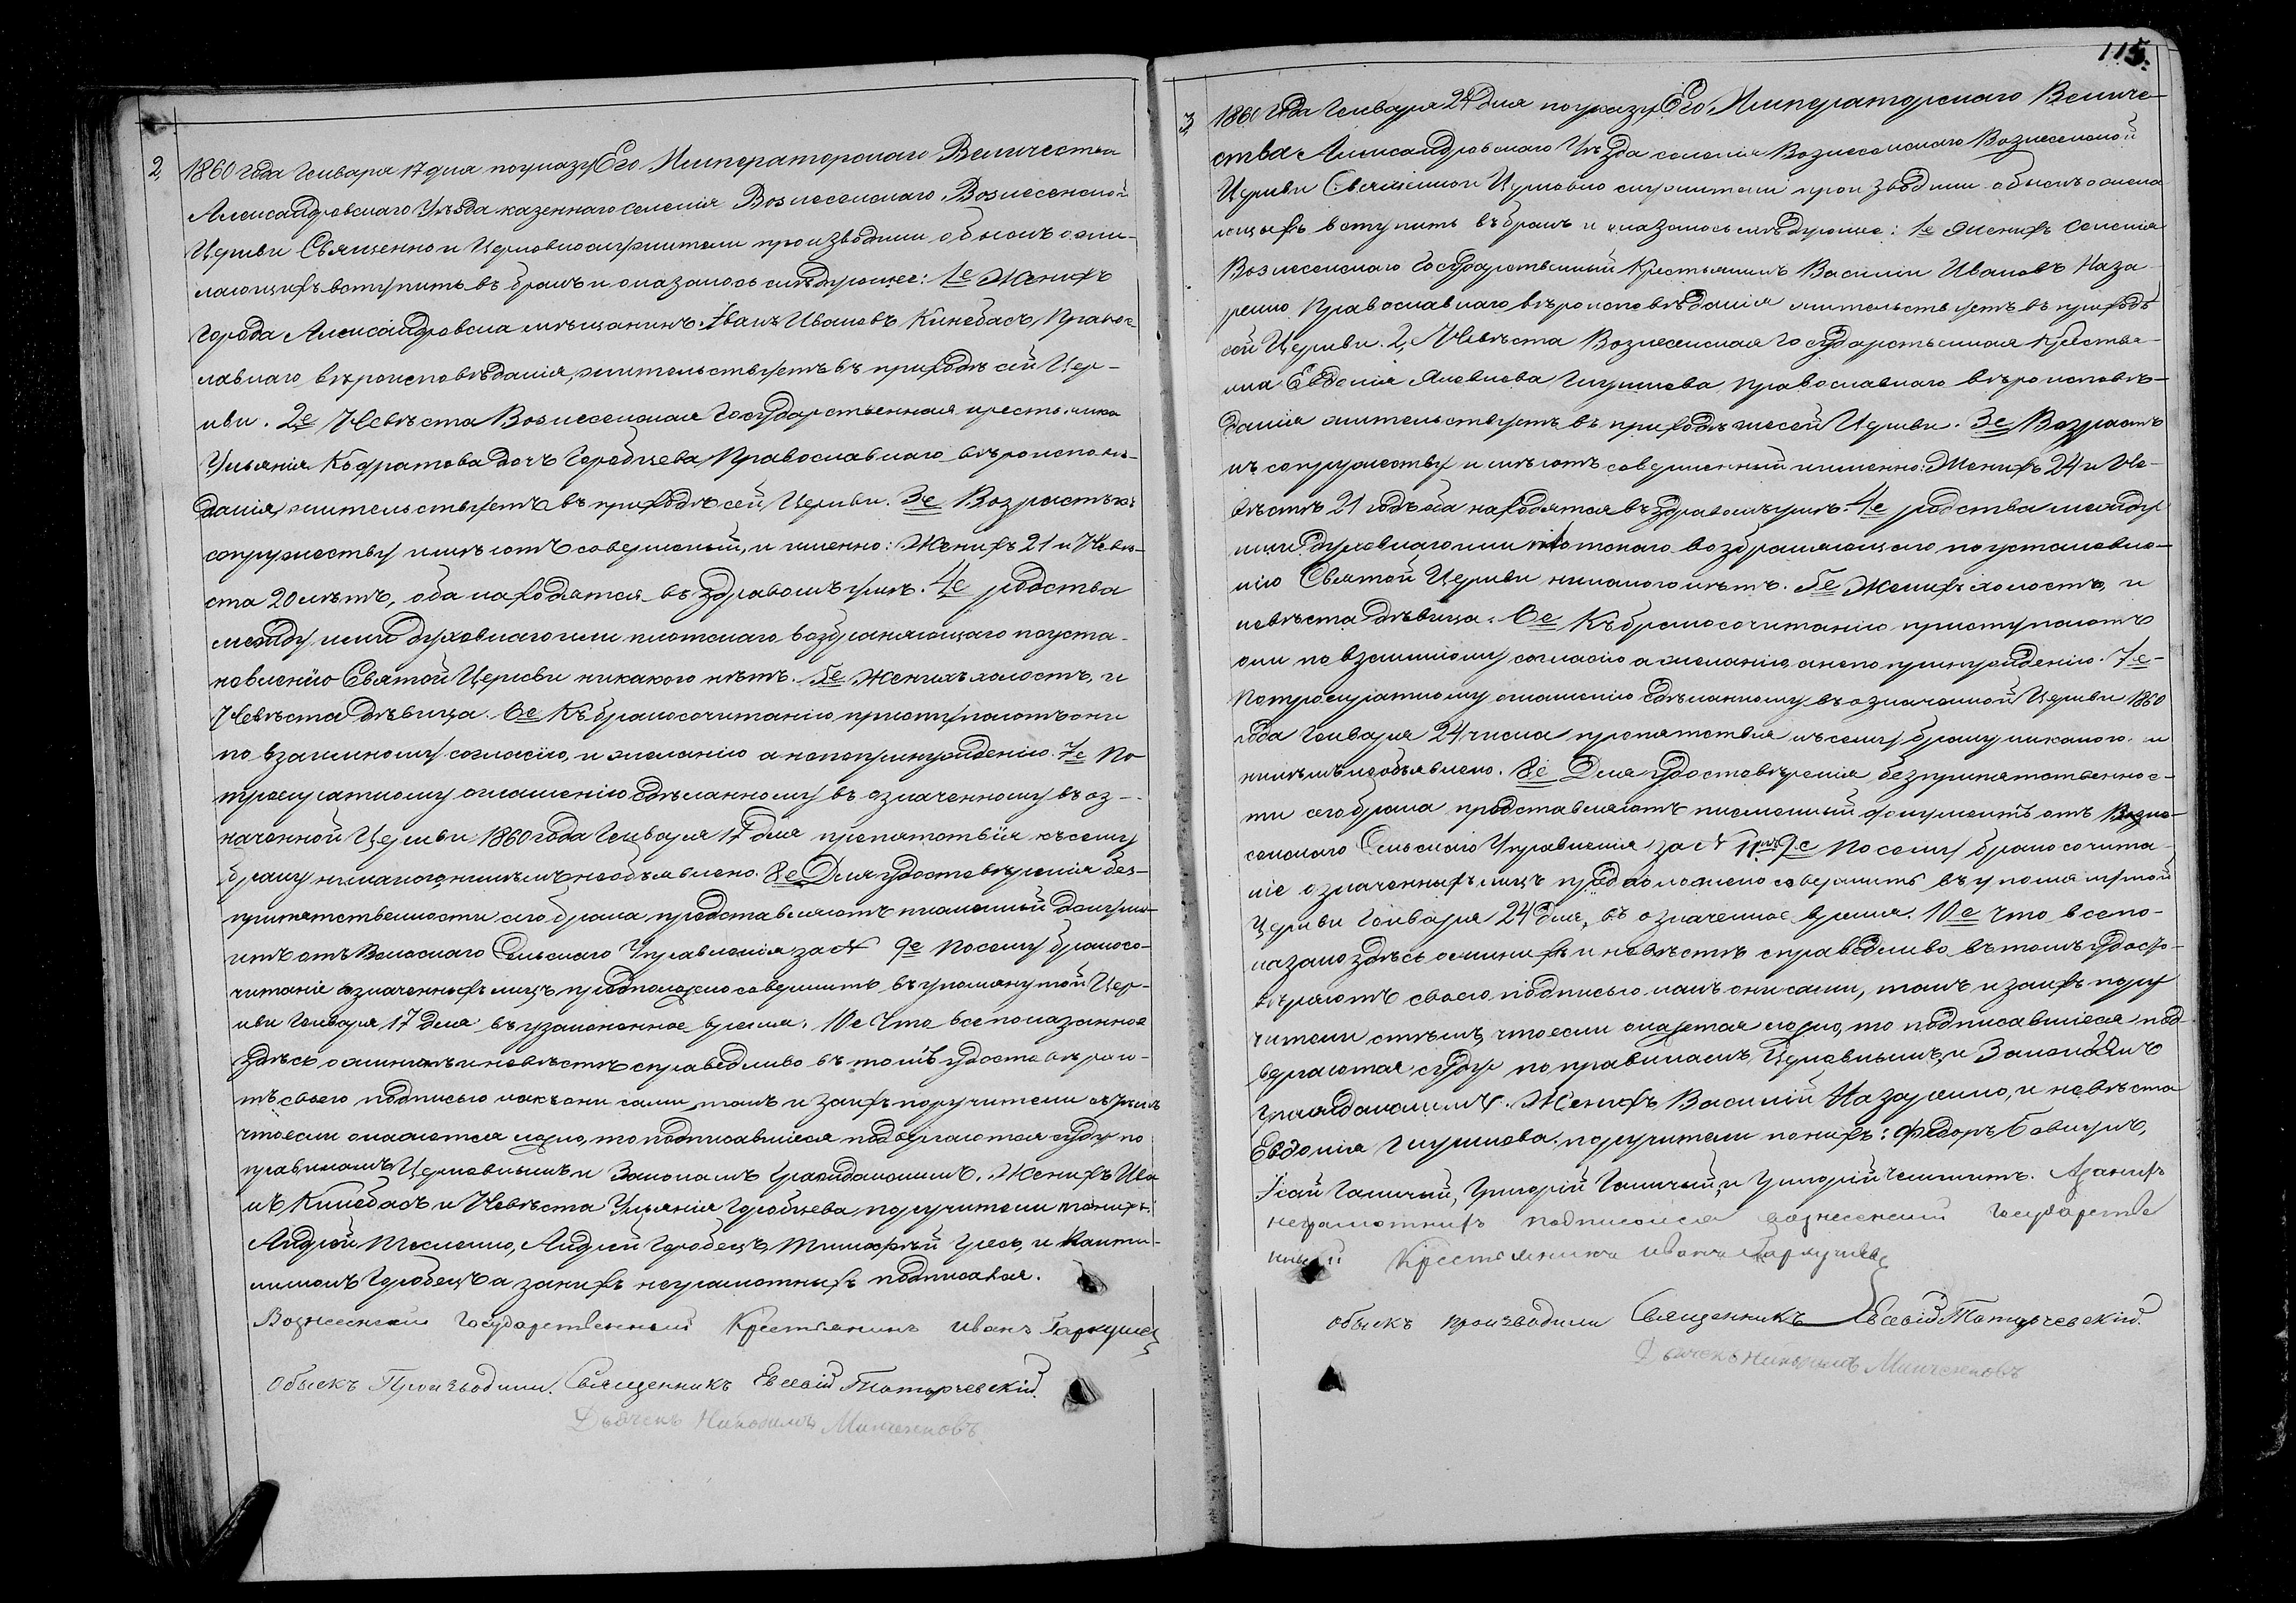 2, 1860 года Генваря 17 дня по указу Его Императорскаго Величества
Александровскаго Уѣзда казеннаго селенія Вознесенскаго Вознесенской
Церкви Священно и Церковнослужители производили обыскъ о жи-
лающихъ вступить въ бракъ и оказалось слѣдующее: 1е Женихъ
города Александровска мѣщанинъ Иванъ Ивановъ Кинебасъ, Правос-
лавнаго вѣроисповѣданія, жительствуетъ въ приходѣ сей Цер-
кви. 2е Невѣста Вознесенская Государственная крестьянка
Ульянія Кодратова дочь Горобцева, Православнаго вѣроисповѣ-
данія, жительствуетъ въ приходѣ сей Церкви. 3е Возрастъ къ
супружеству имѣютъ совершеный, и именно: Женихъ 21 и Невѣ-
ста 20 лѣтъ, оба находятся въ здравомъ умѣ. 4е родства
между ими духовнаго или плотскаго возбраняющаго по уста-
новленію Святой Церкви никакого нѣтъ. 5е Женихъ холостъ, и
Невѣста дѣвица. 6е Къ бракосочитанію приступаютъ они
по взаимному согласію, и желанію а не по принужденію. 7е По
троекратному оглашенію сдѣланному въ означенному въ оз-
наченной Церкви 1860 года Генваря 17 дня препятствія къ сему
браку никакого, никѣмъ необъявлено. 8е Для удостовѣренія без-
припятственности сего брака представляютъ писменный докуме-
нтъ отъ Сельскаго Управленія за № 9е Посему бракосо-
читаніе означенныхъ лицъ предположено совершить въ упомянутой Цер-
кви Генваря 17 дня въ узаконенное время. 10е Что все показанное
здѣсь о женихѣ и невѣстѣ справедливо въ томъ удостовѣряю-
тъ своею подписью какъ они сами такъ и за ихъ поручители съ тѣмъ
что если окажется ложно, то подписавшіеся подвергаются суду по
правиламъ Церковнымъ и Законамъ Гражданскимъ. Женихъ Ива
нъ Кинебасъ и Невѣста Ульянія Горобцева, поручители по нихъ:
Андрей Тесленко, Андрей Горобецъ, Тимофѣй Гресь, и
Горобецъ а за нихъ неграмотныхъ подписался.
Вознесенский Государственный Крестьянинъ Иванъ Гаркушец
Обыскъ Производили: Священникъ Евсевій Тотарчевскій.
Дьячекъ Минченковъ
115.
3, 1860 года Генваря 24 дня по указу Его Императорскаго Величе-
ства Александровскаго Уѣзда селенія Вознесенскаго Вознесенской
Церкви Священнои Церковно служители производили обыскъ о жела
ющихъ вступить въ бракъ и оказалось слѣдующее: 1е Женихъ селенія
Вознесенскаго Государственный Крестьянинъ Василій Ивановъ Наза-
ренко Православнаго вѣроисповѣданія жительствуетъ въ приходѣ
сей Церкви. 2, Невѣста Вознесенская Государственная Крестья-
нка Евдокія Яковлева Глушкова, православнаго вѣроисповѣ-
данія жительствуетъ въ приходѣ сей Церкви. 3е Возрастъ
къ супружеству имѣютъ совершенный именно: Женихъ 24 и Не-
вѣстѣ 21 годъ оба находятся въ здравомъ умѣ. 4е родства между
ими духовнаго или плотскаго возбраняющаго по установле-
нію Святой Церкви никакого нѣтъ. 5е Женихъ холостъ, и
невѣста дѣвица. 6е Къ бракосочитанію приступаютъ
они по взаимному согласію а желанію, а не по принужденію. 7е-
По троекратному оглашенію сдѣланному въ означенной Церкви 1860
года Генваря 24 числа препятствія къ сему браку никакого и
никѣмъ необъявлено. 8е Для удостовѣренія безприпятственнос-
ти сего брака представляютъ писменный документъ отъ Возне-
сенскаго Сельскаго Управленія за № 9е Посему бракосочита-
ніе означенныхъ лицъ предположено совершить въ упомянутой
Церкви Генваря 24 дня, въ означенное время. 10е Что все по-
казано здѣсь о женихѣ и невѣстѣ справедливо въ томъ удосто-
вѣряютъ своею подписью какъ они сами, такъ и за ихъ пору
чители стѣмъ, что если окажется ложно, то подписавшіеся под
вергаются суду по правиламъ Церковнымъ, и Законамъ
Гражданскимъ. Женихъ Василій Назаренко, и невѣста
Евдокія Глушкова. поручители по нихъ: Федоръ Бовкунъ,
Исай Галичый, Григорій Галичый, и Григорій. А за нихъ
неграмотнихъ подписался вознесенский Государстве
нный Крестьянинъ Иванъ Гаркушец
Обыскъ производили Священникъ Евсевій Тотарчевскій.
Дьячекъ Минченковъ